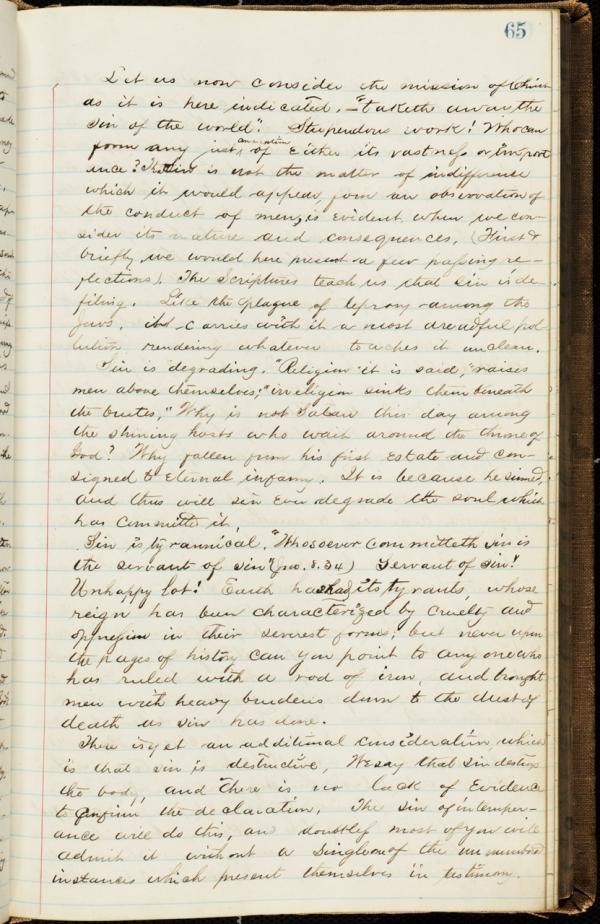 65
Let us now consider the mission of Christ
as it is here indicated. — "taketh away the
sin of the world". Stupendous work! Who can
form any just conception of Either its vastness or import
ance? That sin is not the matter of indifference
which it would appear, from an observation of
the conduct of men, is Evident when we con-
sider its nature and consequences, (First &
briefly we would here present a few passing re-
flections). The Scriptures teach us that sin is de-
filing. Like the plague of leprosy among the
Jews, it carries with it a most dreadful pol
lution rendering whatever touches it unclean.
Sin is degrading. "Religion" it is said, "raises
men above themselves;" irreligion sinks them beneath
the brutes," Why is not Satan this day among
the shining hosts who wait around the throne of
God? Why fallen from his first Estate and con-
signed to Eternal infamy. It is because he sinned,
and thus will sin Ever degrade the soul which
has committed it,
Sin is tyrannical. "Whosoever committeth sin is
the servant of sin" (Jno. 8.34) Servant of sin!
Unhappy lot! Earth has had its tyrants, whose
reign has been characterized by cruelty and
oppression in their severest forms; but never upon
the pages of history can you point to any one who
has ruled with a rod of iron, and brought
men with heavy burdens down to the dust of
death as sin has done.
There is yet an additional consideration, which
is that sin is destructive, We say that sin destroys
the body, and there is no lack of Evidence
to Confirm the declaration. The sin of intemper-
ance will do this, and doubtless most of you will
admit it without a single one of the unnumbered
instances which present themselves in testimony.